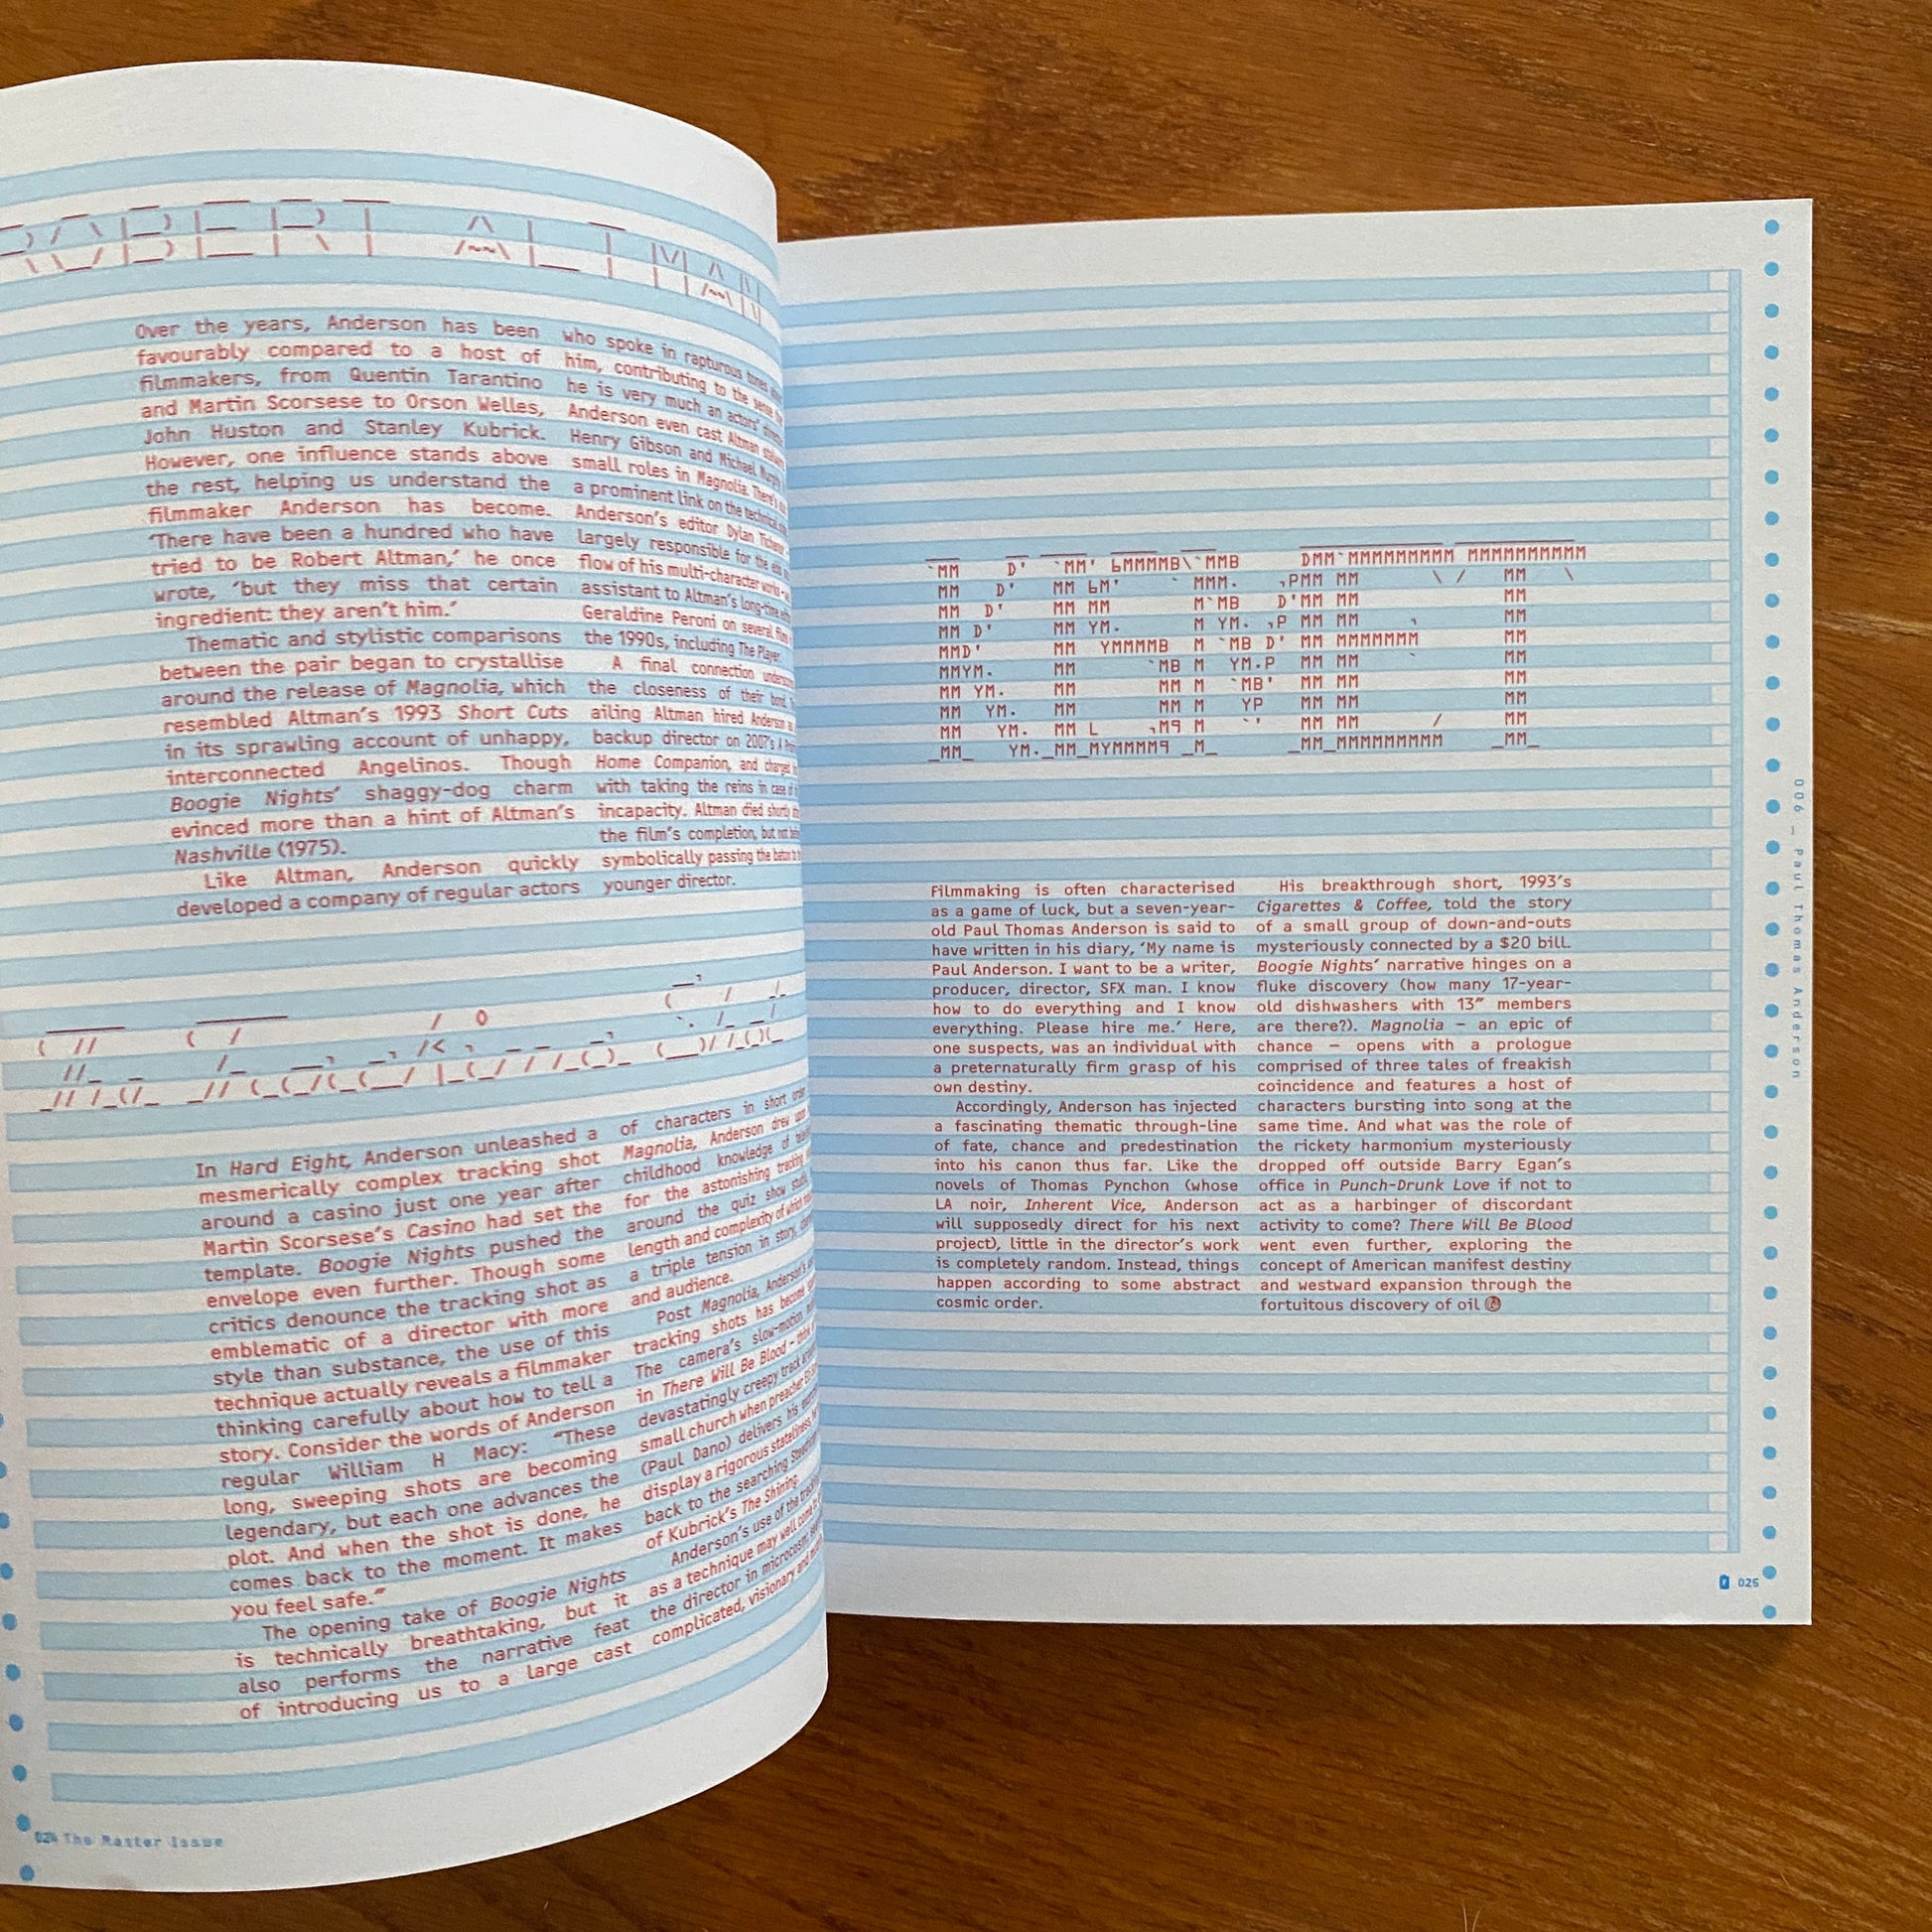 ROBERT ALTMAN
Over the years, Anderson has been
favourably compared to a host of
filmmakers, from Quentin Tarantino
and Martin Scorsese to Orson Welles,
John Huston and Stanley Kubrick.
However, one influence stands above
the rest, helping us understand the
filmmaker Anderson has become.
'There have been a hundred who have
tried to be Robert Altman,' he once
wrote, 'but they miss that certain
ingredient: they aren't him.'
Thematic and stylistic comparisons
between the pair began to crystallise
around the release of Magnolia, which
resembled Altman's 1993 Short Cuts
in its sprawling account of unhappy,
interconnected Angelinos. Though
Boogie Nights' shaggy-dog charm
evinced more than a hint of Altman's
Nashville (1975).
Like Altman, Anderson quickly
developed a company of regular actors
who spoke in rapturous tones
him, contributing to the sense
he is very much an actors'
Anderson even cast Altman
Henry Gibson and Michael Murphy
small roles in Magnolia. There's
a prominent link on the technical
Anderson's editor Dylan Tichenor
largely responsible for the
flow of his multi-character works
assistant to Altman's long-time
Geraldine Peroni on several
the 1990s, including The Player.
A final connection
the closeness of their bond.
ailing Altman hired Anderson
backup director on 2007's A
Home Companion, and charged
with taking the reins in case of
incapacity. Altman died shortly
the film's completion, but not
symbolically passing the baton
younger director.
The Tracking Shot
In Hard Eight, Anderson unleashed a
mesmerically complex tracking shot
around a casino just one year after
Martin Scorsese's Casino had set the
template. Boogie Nights pushed the
envelope even further. Though some
critics denounce the tracking shot as
emblematic of a director with more
style than substance, the use of this
technique actually reveals a filmmaker
thinking carefully about how to tell a
story. Consider the words of Anderson
regular William H Macy: "These
long, sweeping shots are becoming
legendary, but each one advances the
plot. And when the shot is done, he
comes back to the moment. It makes
you feel safe."
The opening take of Boogie Nights
is technically breathtaking, but it
also performs the narrative feat
of introducing us to a large cast
of characters in short order.
Magnolia, Anderson drew upon
childhood knowledge of
for the astonishing tracking
around the quiz show
length and complexity of which
a triple tension in story,
and audience.
Post Magnolia, Anderson's
tracking shots has become
The camera's slow-motion
in There Will Be Blood – think
devastatingly creepy track
small church when preacher Eli
(Paul Dano) delivers his
display a rigorous stateliness
back to the searching Steadicam
of Kubrick's The Shining.
Anderson's use of the tracking
as a technique may well come
the director in microcosm:
complicated, visionary and
024 The Raster Issue
KISMET
Filmmaking is often characterised
as a game of luck, but a seven-year-
old Paul Thomas Anderson is said to
have written in his diary, 'My name is
Paul Anderson. I want to be a writer,
producer, director, SFX man. I know
how to do everything and I know
everything. Please hire me.' Here,
one suspects, was an individual with
a preternaturally firm grasp of his
own destiny.
Accordingly, Anderson has injected
a fascinating thematic through-line
of fate, chance and predestination
into his canon thus far. Like the
novels of Thomas Pynchon (whose
LA noir, Inherent Vice, Anderson
will supposedly direct for his next
project), little in the director's work
is completely random. Instead, things
happen according to some abstract
cosmic order.
His breakthrough short, 1993's
Cigarettes & Coffee, told the story
of a small group of down-and-outs
mysteriously connected by a $20 bill.
Boogie Nights' narrative hinges on a
fluke discovery (how many 17-year-
old dishwashers with 13" members
are there?). Magnolia – an epic of
chance – opens with a prologue
comprised of three tales of freakish
coincidence and features a host of
characters bursting into song at the
same time. And what was the role of
the rickety harmonium mysteriously
dropped off outside Barry Egan's
office in Punch-Drunk Love if not to
act as a harbinger of discordant
activity to come? There Will Be Blood
went even further, exploring the
concept of American manifest destiny
and westward expansion through the
fortuitous discovery of oil
006 – Paul Thomas Anderson
025